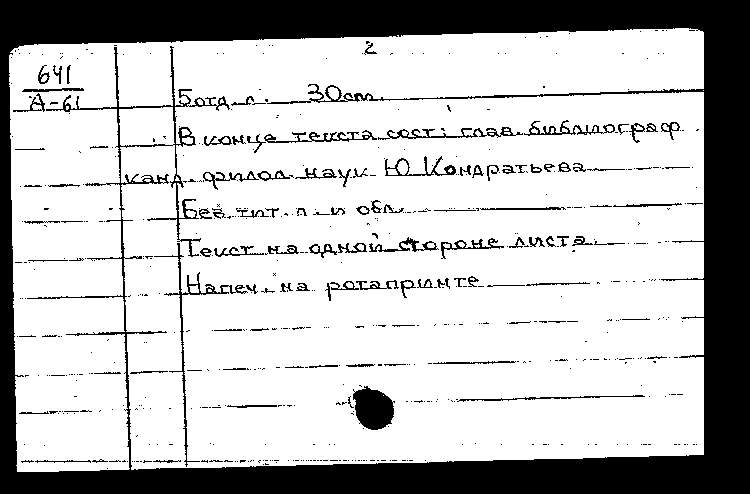 2
641
А-61
5 отд. л. 30 см.
В конце текста сост: глав. библиограф
канд. филол. наук Ю Кондратьева
Без тит. л. и обл.
Текст на одной стороне листа.
Напеч. на ротапринте